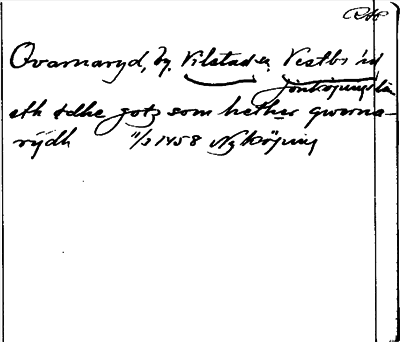 RAP
Qvarnaryd, by. Vilstad s. Västbo hd
Jönköpings län
eth ödhe gotz som hether qwerna-
rydh 11/2 1458 Nyköping